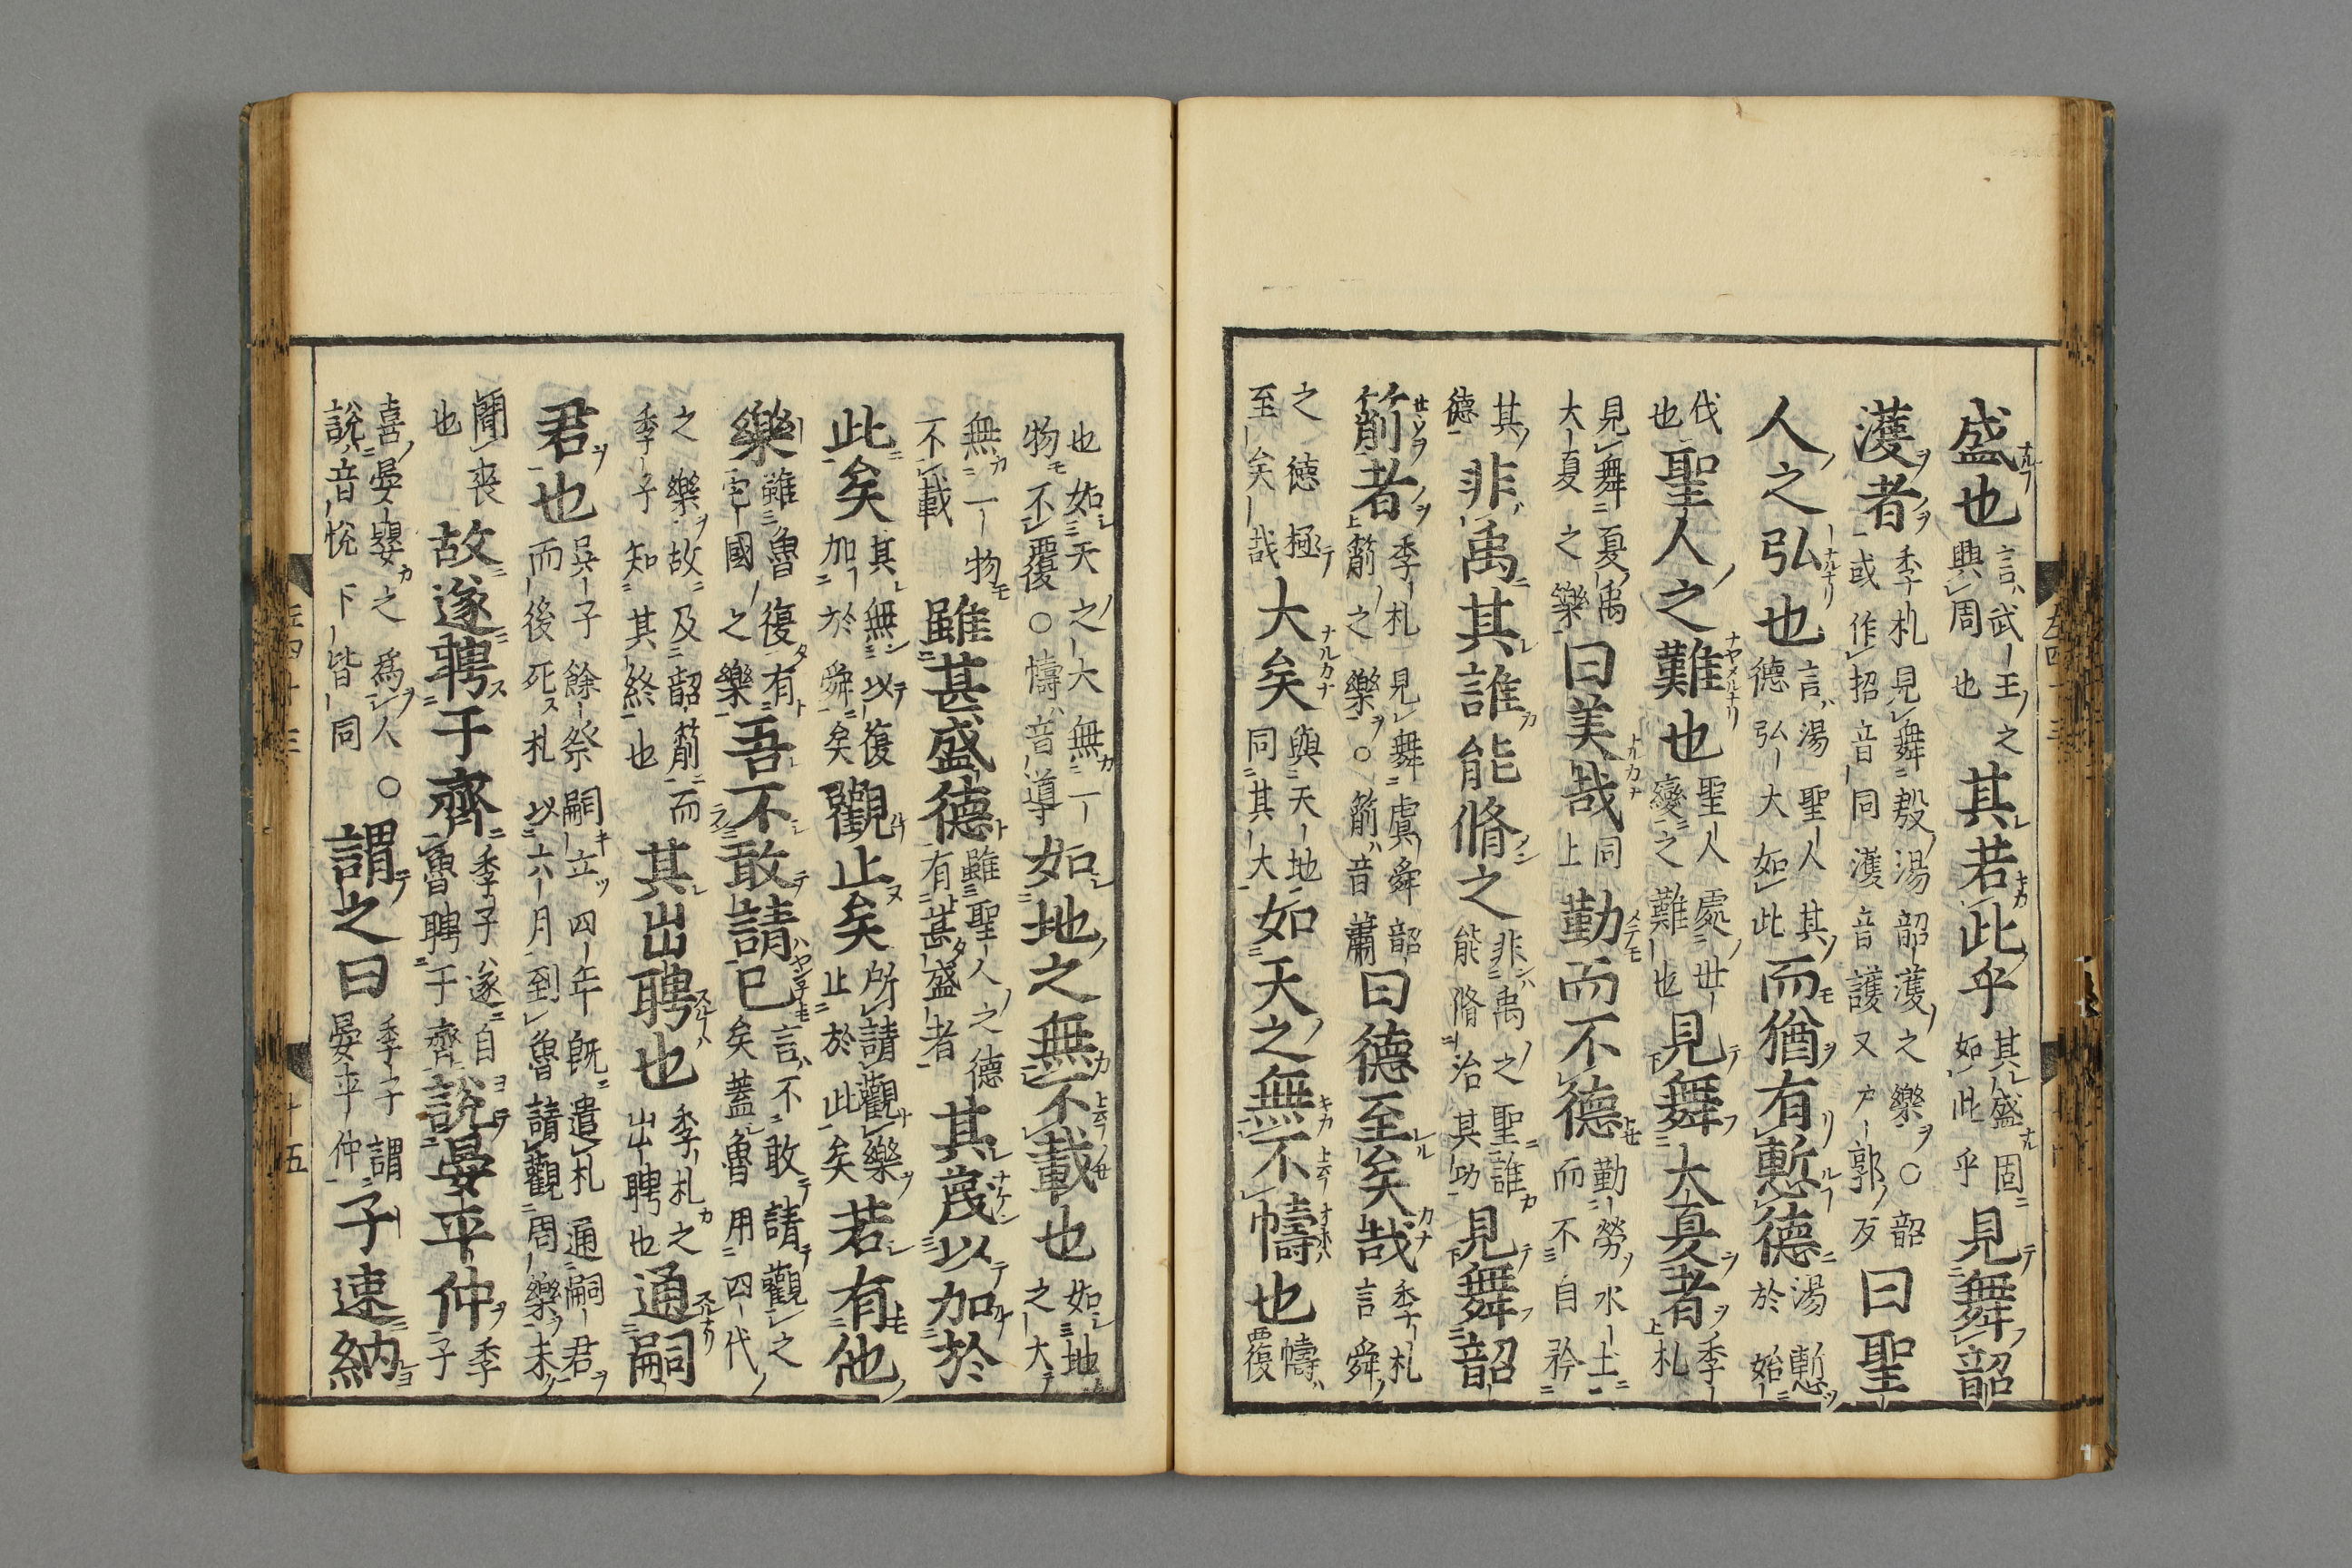 盛也言武王之興周也其若此乎其盛固如此乎見舞韶
濩者季札見舞殷湯韶濩之樂○韶或作招音同濩音護又戸郭反曰聖
人之弘也言湯聖人其德弘大如此而猶有慙德湯慙於始
伐也聖人之難也聖人處世變之難也見舞大夏者季札
見舞夏禹大夏之樂曰美哉同上勤而不德勤勞水土而不自矜
其德非禹其誰能脩之非禹之聖誰能脩治其功見舞韶
箾者季札見舞虞舜韶箾之樂○箾音蕭曰德至矣哉季札言舜
之德極至矣哉大矣與天地同其大如天之無不幬也幬覆
也如天之大無一物不覆○幬音導如地之無不載也如地之大
無一物不載雖甚盛德雖聖人之德有甚盛者其蔑以加於
此矣其無以復加於舜矣觀止矣所請觀樂止於此矣若有他
樂雖魯國之樂復有吾不敢請已言不敢請觀之矣蓋魯用四代
之樂故及韶箾而季子知其終也其出聘也季札之出聘也通嗣
君也吳子餘祭嗣立四年既遣札通嗣君而後死札以六月到魯請觀周樂未
聞喪也故遂聘于齊季子遂自魯聘于齊說晏平仲季子
喜晏嬰之爲人○說音悅下皆同謂之曰季子謂晏平仲子速納
左四十三
十五